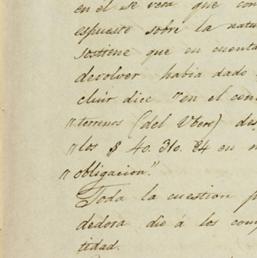 en el se verá que con
espuesto sobre la natu
sostiene que en cuenta
devolver había dado
cluir dice "en el con
"terrenos (del Uber) des
"los $ 40.310.84 en n
"obligacion".
Toda la cuestion p
dedora dió á los comp
tidad.